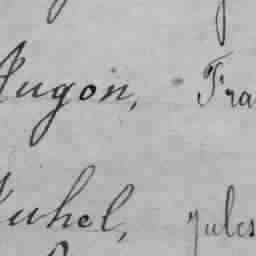 Hugon, Fra
Kuhel, Jules